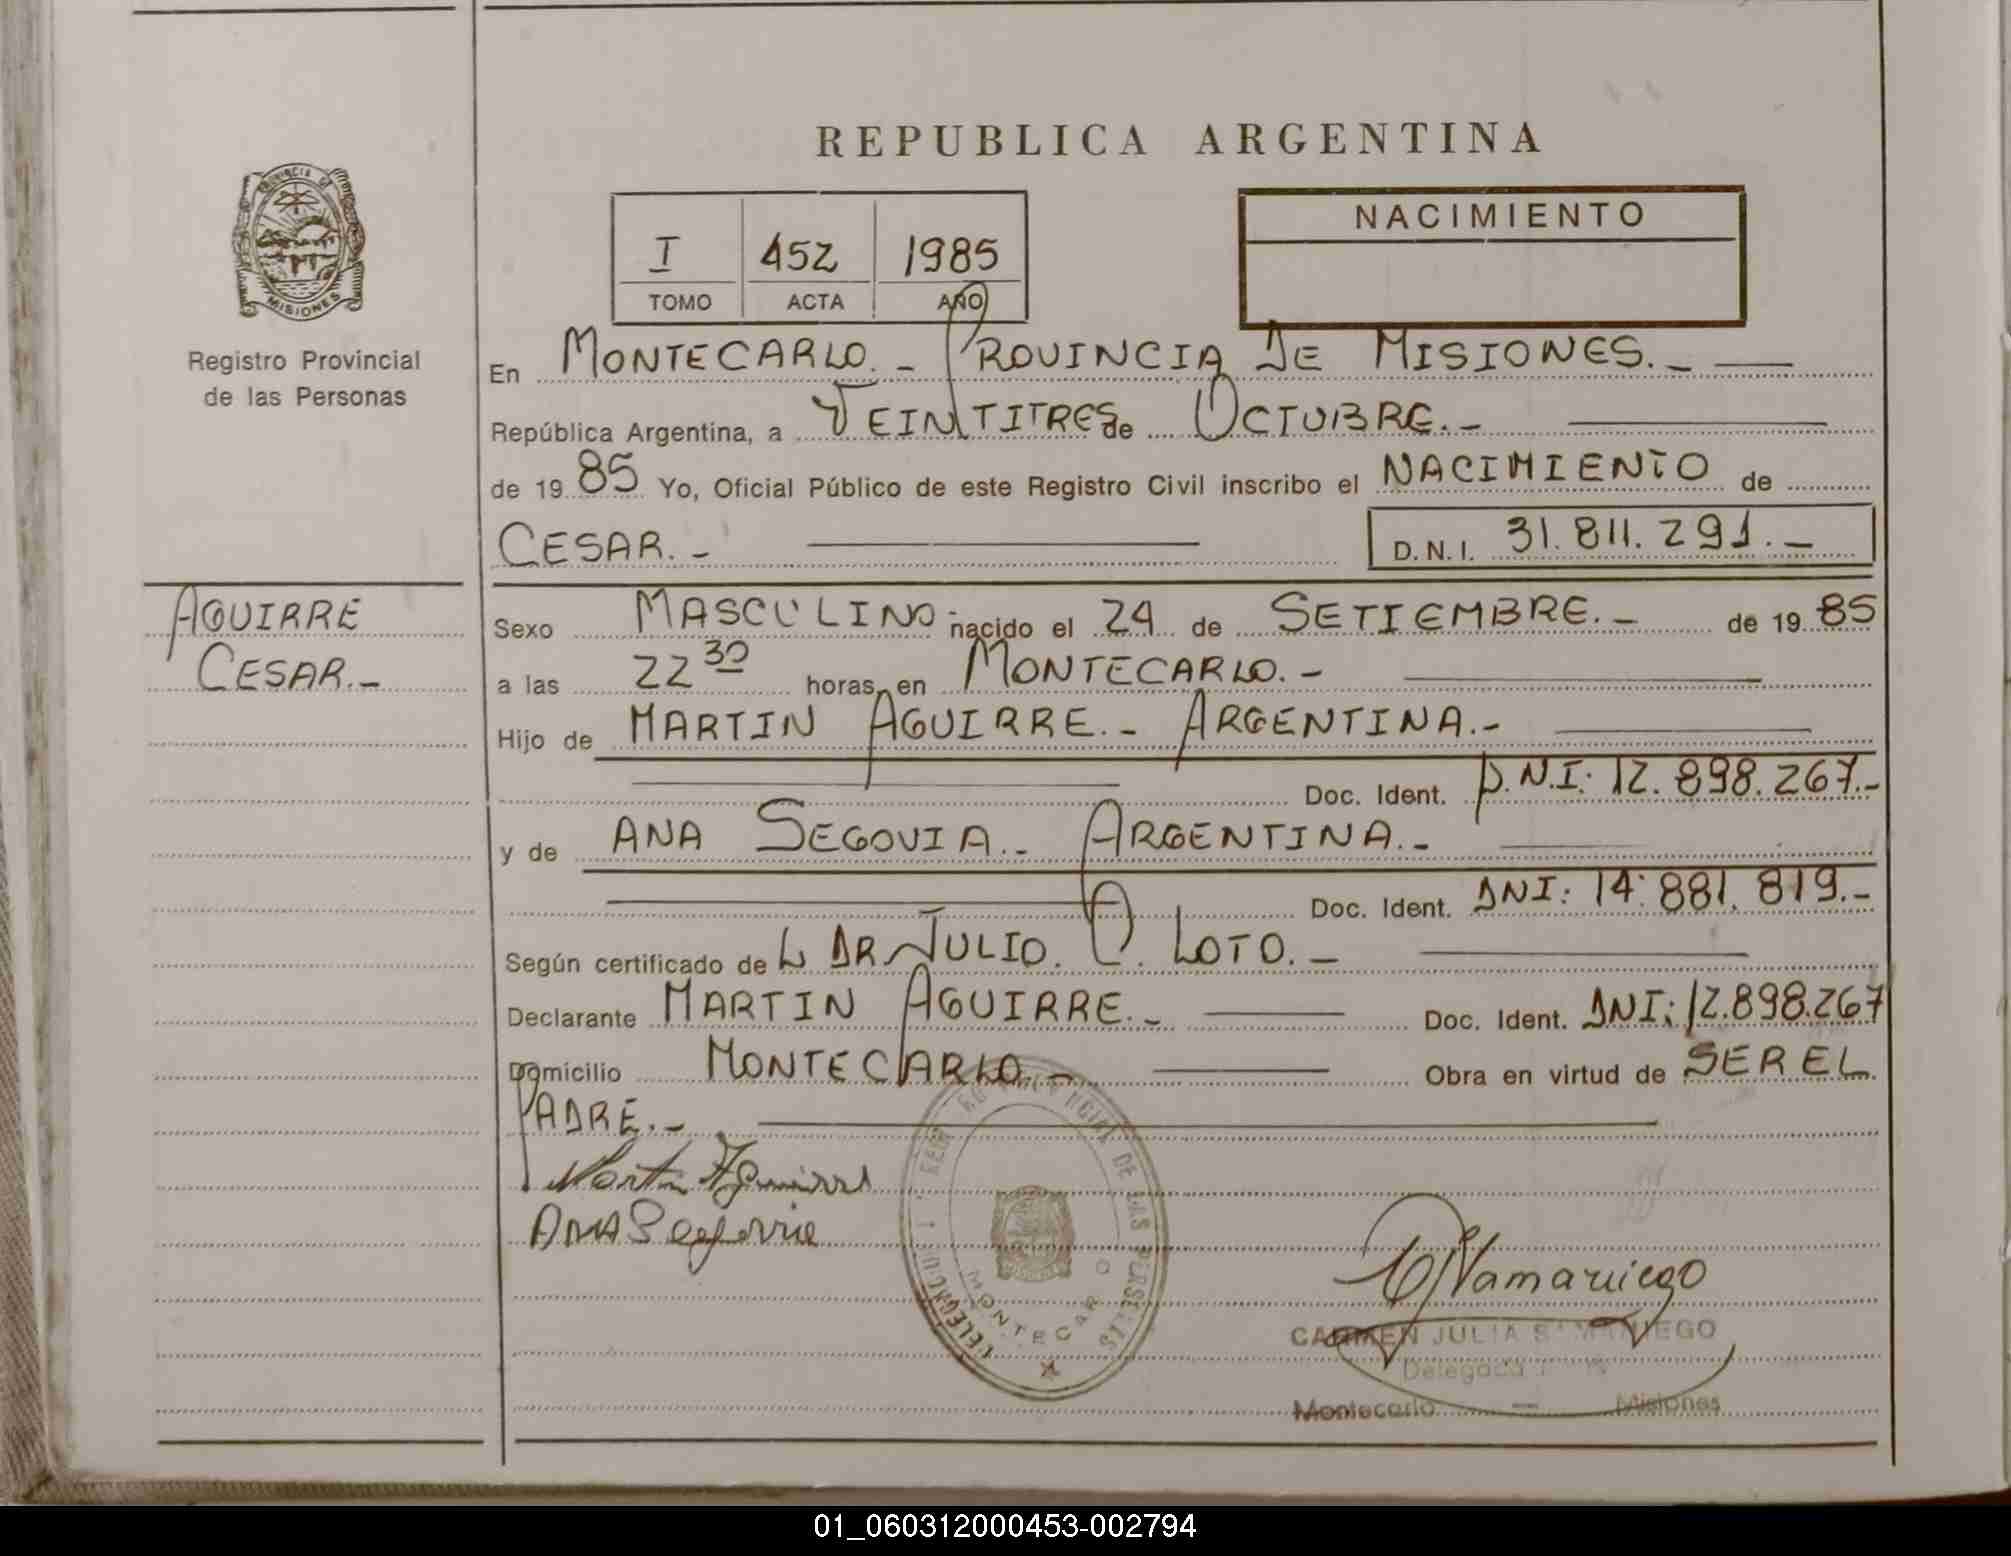 REPUBLICA ARGENTINA
PROVINCIA DE MISIONES
Registro Provincial
de las Personas
I 452 1985
TOMO ACTA AÑO
NACIMIENTO
En MONTECARLO.- PROVINCIA DE MISIONES.-
República Argentina, a VEINTITRES de OCTUBRE.-
de 1985 Yo, Oficial Público de este Registro Civil inscribo el NACIMIENTO de
CESAR.- D.N.I. 31.811.291.-
AGUIRRE
CESAR.-
Sexo MASCULINO.- nacido el 24 de SETIEMBRE.- de 1985
a las 22 30 horas, en MONTECARLO.-
Hijo de MARTIN AGUIRRE.- ARGENTINA.-
Doc. Ident. D.N.I: 12.898.267.-
y de ANA SEGOVIA.- ARGENTINA.-
Doc. Ident. DNI: 14.881.819.-
Según certificado de L DR JULIO. C. LOTO.-
Declarante MARTIN AGUIRRE.- Doc. Ident. DNI: 12.898.267
Domicilio MONTECARLO.- Obra en virtud de SER EL
PADRE.-
Martin Aguirre
ANA Segovia
DE LAS PERSONAS
MONTECARLO
CARMEN JULIA SAMANIEGO
Delegada
Montecarlo - Misiones
01_060312000453-002794